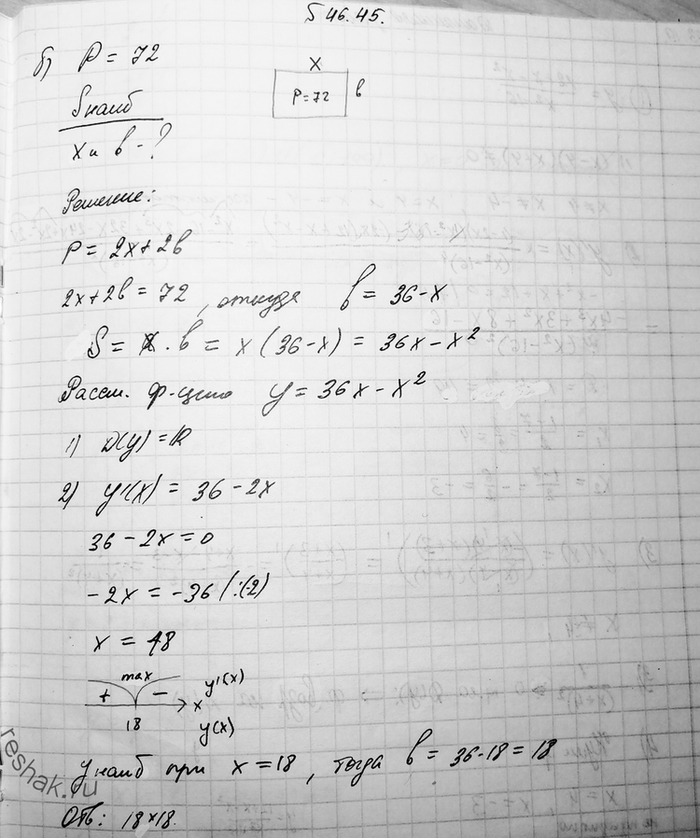 § 46.45.
б) P = 72
x
P = 72 в
Sнаиб
x и в - ?
Решение:
P = 2x + 2в
2x + 2в = 72, откуда в = 36 - x
S = x · в = x (36 - x) = 36x - x²
Рассм. ф-цию y = 36x - x²
1) D(y) = R
2) y'(x) = 36 - 2x
36 - 2x = 0
-2x = -36 /:(-2)
x = 18
max y'(x)
+ - x
18 y(x)
y наиб при x = 18, тогда в = 36 - 18 = 18
Отв: 18 × 18.
reshak.ru